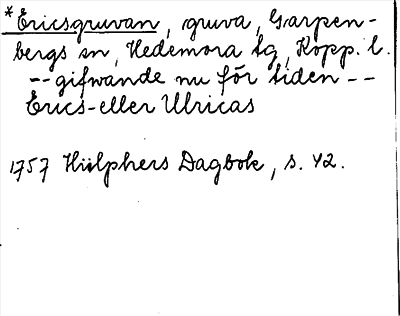 *Ericsgruvan, gruva, Garpen-
bergs sn, Hedemora tg, Kopp. l.
-- gifwande nu för tiden --
Erics- eller Ulricas
1757 Hülphers Dagbok, s. 42.